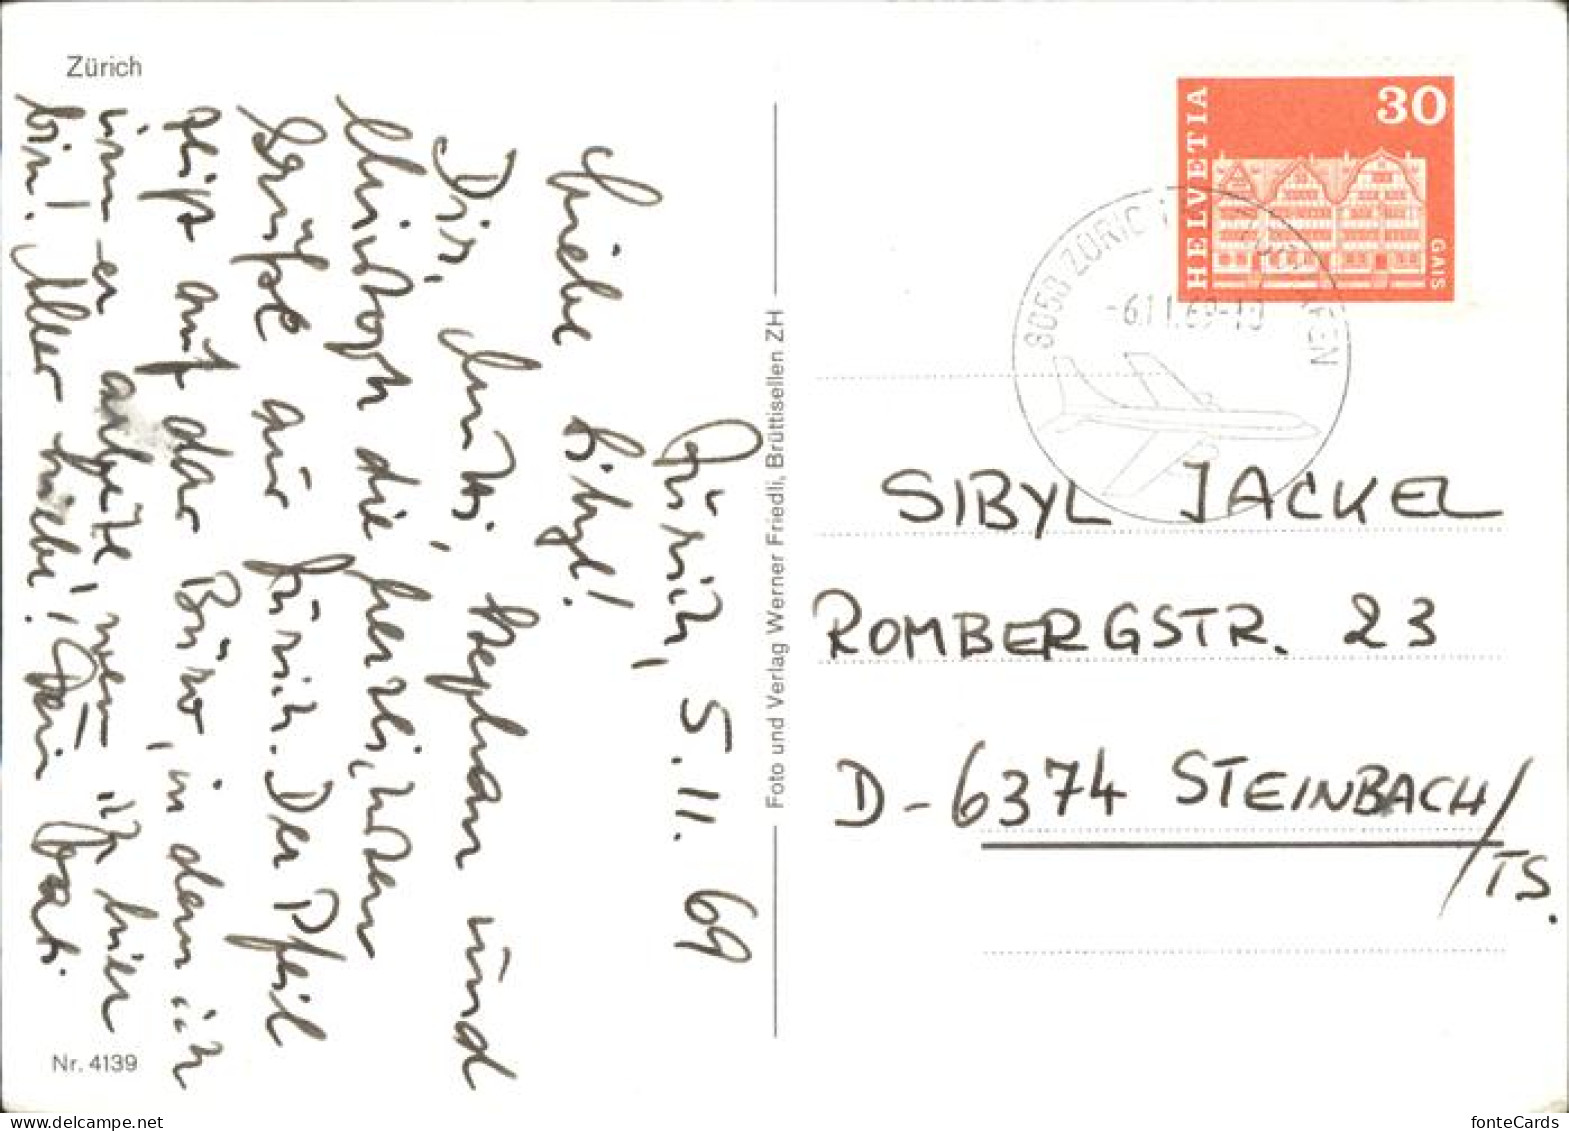 Zürich
Zürich, 5.11.69
Liebe Sibyl!
Dir, Mutti, Stephan und
Christoph die herzlichsten
Grüße aus Zürich. Der Pfeil
zeigt auf das Büro, in dem ich
immer arbeite, wenn ich hier
bin! Alles Liebe! Dein Vati.
Nr. 4139
Foto und Verlag Werner Friedli, Brüttisellen ZH
HELVETIA
30
GAIS
8058 ZÜRICH FLUGHAFEN
-6.11.69-10
SIBYL JACKEL
ROMBERGSTR. 23
D-6374 STEINBACH/
TS.
fonteCards